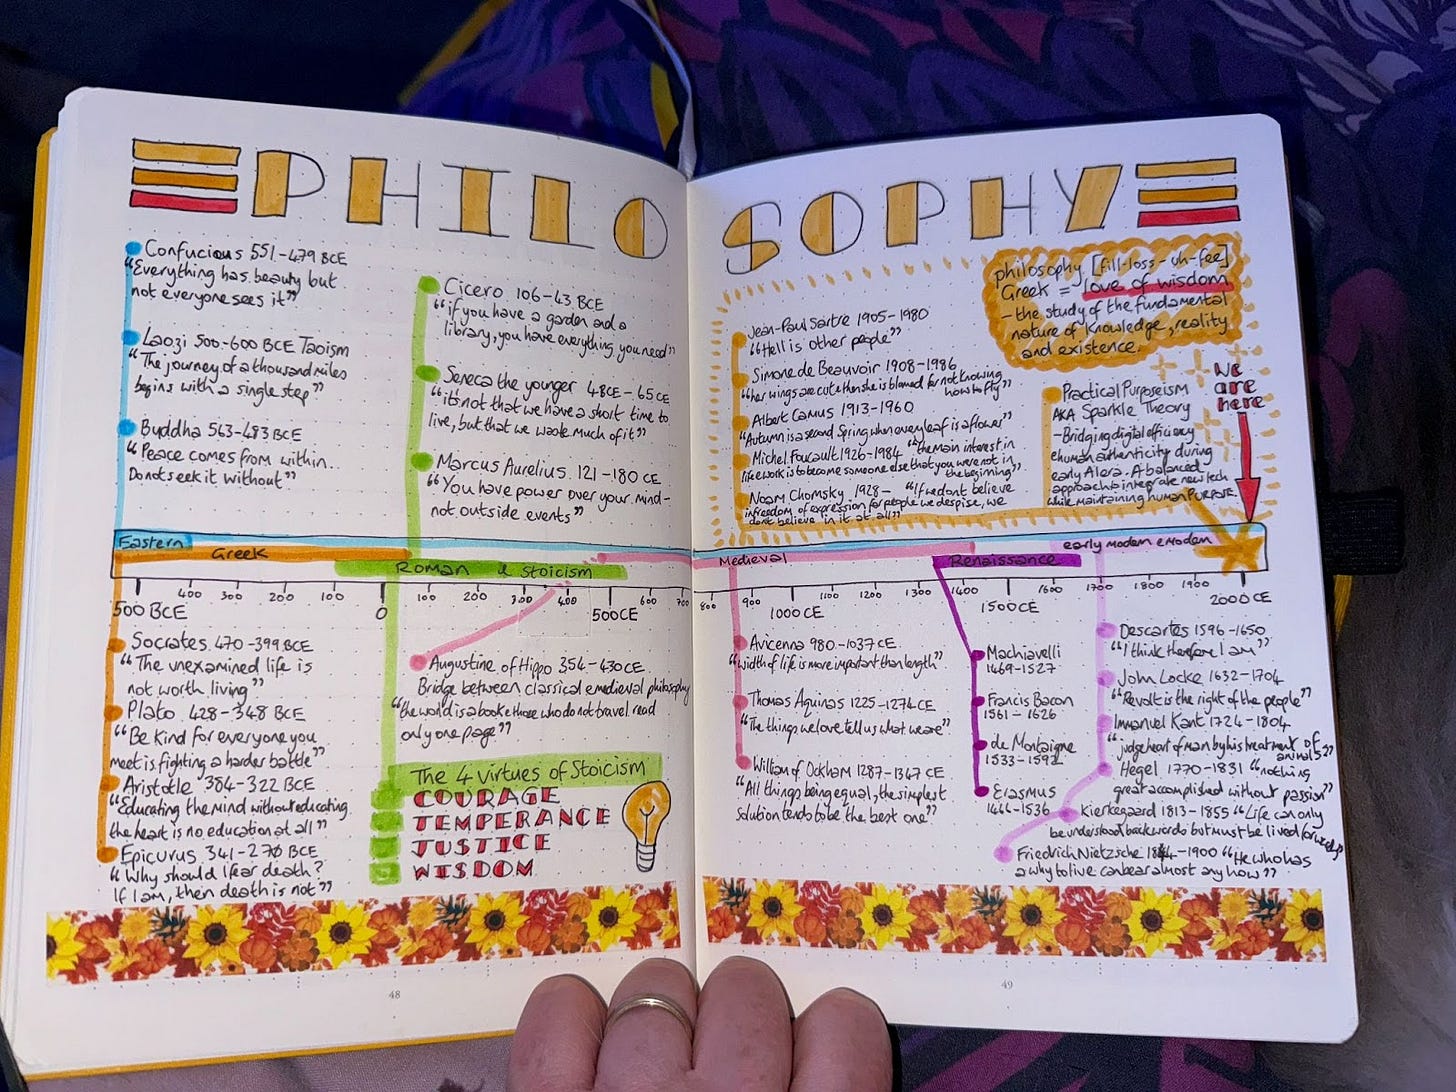 PHILOSOPHY
Confucious 551-479 BCE
"Everything has beauty but
not everyone sees it"
Laozi 500-600 BCE Taoism
"The journey of a thousand miles
begins with a single step"
Buddha 563-483 BCE
"Peace comes from within..
Do not seek it without"
Cicero 106-43 BCE
"if you have a garden and a
library, you have everything you need"
Seneca the younger 4BCE-65CE
"it's not that we have a short time to
live, but that we waste much of it"
Marcus Aurelius 121-180 CE
"You have power over your mind-
not outside events"
philosophy [fill-loss-uh-fee]
Greek = love of wisdom
- the study of the fundamental
nature of knowledge, reality
and existence.
Jean-Paul Sartre 1905-1980
"Hell is other people"
Simone de Beauvoir 1908-1986
"her wings are cut & then she is blamed for not knowing
how to fly"
Albert Camus 1913-1960
"Autumn is a second Spring when every leaf is a flower"
Michel Foucault 1926-1984 "the main interest in
life & work is to become someone else that you were not in
the beginning"
Noam Chomsky 1928- "If we dont believe
in freedom of expression for people we despise, we
dont believe in it at all"
Practical Purposeism
AKA Sparkle Theory
- Bridging digital efficiency
& human authenticity during
early AI era. A balanced
approach to integrate new tech
while maintaining human PURPOSE.
We
are
here
Eastern
Greek
Roman & Stoicism
Medieval
Renaissance
early modern & modern
500 BCE 400 300 200 100 0 100 200 300 400 500CE 600 700
800 900 1000CE 1100 1200 1300 1400 1500CE 1600 1700 1800 1900 2000CE
Socrates 470-399 BCE
"The unexamined life is
not worth living"
Plato 428-348 BCE
"Be Kind for everyone you
meet is fighting a harder battle"
Aristotle 384-322 BCE
"Educating the mind without educating
the heart is no education at all"
Epicurus 341-270 BCE
"Why should I fear death?
If I am, then death is not"
Augustine of Hippo 354-430CE
Bridge between classical & medieval philosophy
"the world is a book & those who do not travel read
only one page"
The 4 virtues of Stoicism
COURAGE
TEMPERANCE
JUSTICE
WISDOM
Avicenna 980-1037CE
"width of life is more important than length"
Thomas Aquinas 1225-1274CE
"The things we love tell us what we are"
William of Ockham 1287-1347 CE
"All things being equal, the simplest
solution tends to be the best one"
Machiavelli
1469-1527
Francis Bacon
1561-1626
de Montaigne
1533-1592
Erasmus
1466-1536
Descartes 1596-1650
"I think therefore I am"
John Locke 1632-1704
"Revolt is the right of the people"
Immanuel Kant 1724-1804
"judge heart of man by his treatment of
animals"
Hegel 1770-1831 "nothing
great accomplished without passion"
Kierkegaard 1813-1855 "Life can only
be understood backwards but must be lived forwards"
Friedrich Nietzsche 1844-1900 "He who has
a why to live can bear almost any how"
48
49